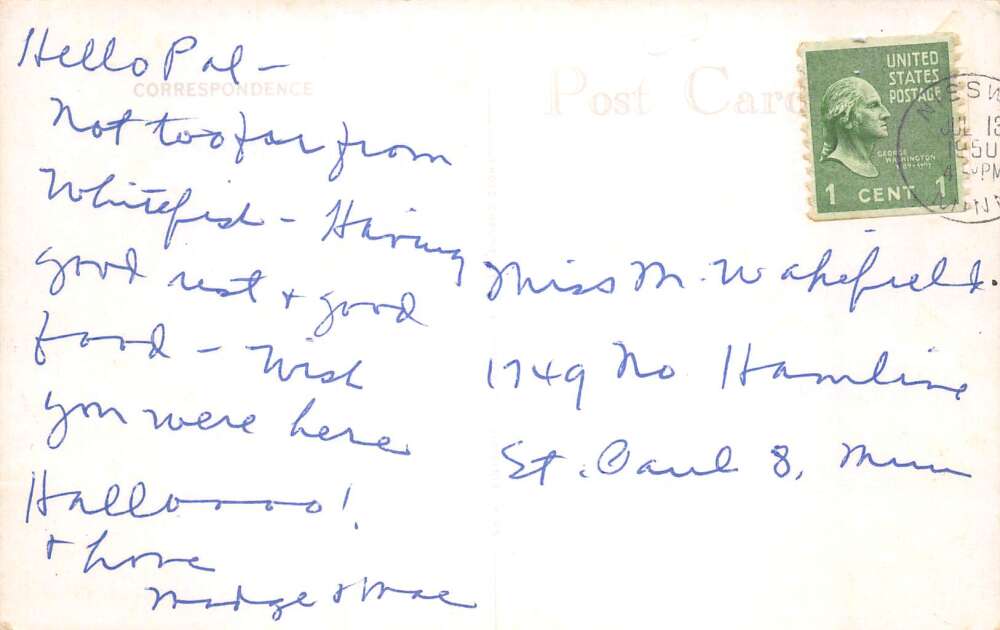 Hello Pal -
CORRESPONDENCE
Not too far from
Whitefish - Having
good rest + good
food - Wish
you were here
Halloooo!
+ Love
Madge & Mae
Post Card
UNITED
STATES
POSTAGE
GEORGE
WASHINGTON
1789-1797
1 CENT 1
NISSW
JUL 13
1950
PM
MINN
Miss M. Wakefield.
1749 No Hamline
St. Paul 8, Minn